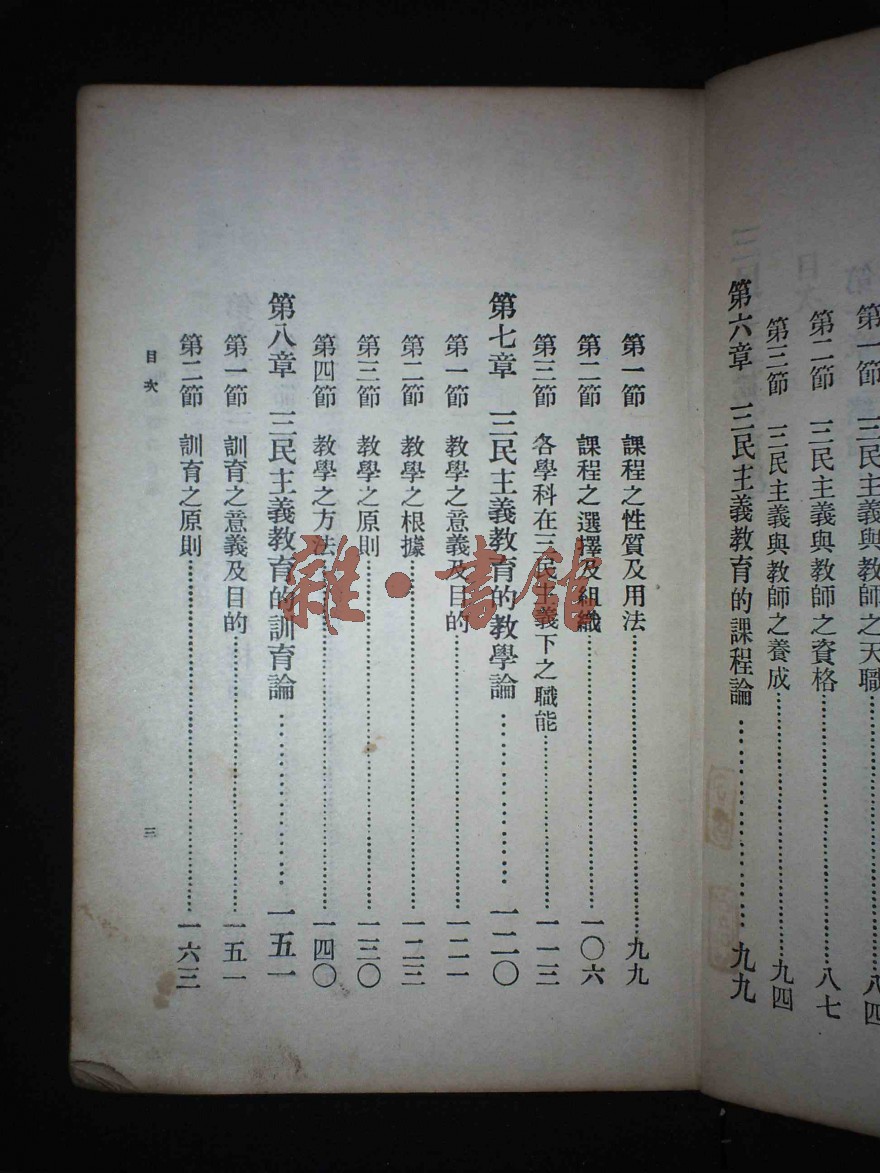 第一節　三民主義與教師之天職……八四
第二節　三民主義與教師之資格……八七
第三節　三民主義與教師之養成……九四
第六章　三民主義教育的課程論……九九
第一節　課程之性質及用法……九九
第二節　課程之選擇及組織……一〇六
第三節　各學科在三民主義下之職能……一一三
第七章　三民主義教育的教學論……一二〇
第一節　教學之意義及目的……一二一
第二節　教學之根據……一二三
第三節　教學之原則……一三〇
第四節　教學之方法……一四〇
第八章　三民主義教育的訓育論……一五一
第一節　訓育之意義及目的……一五一
第二節　訓育之原則……一六三
目次
三
雜·書館